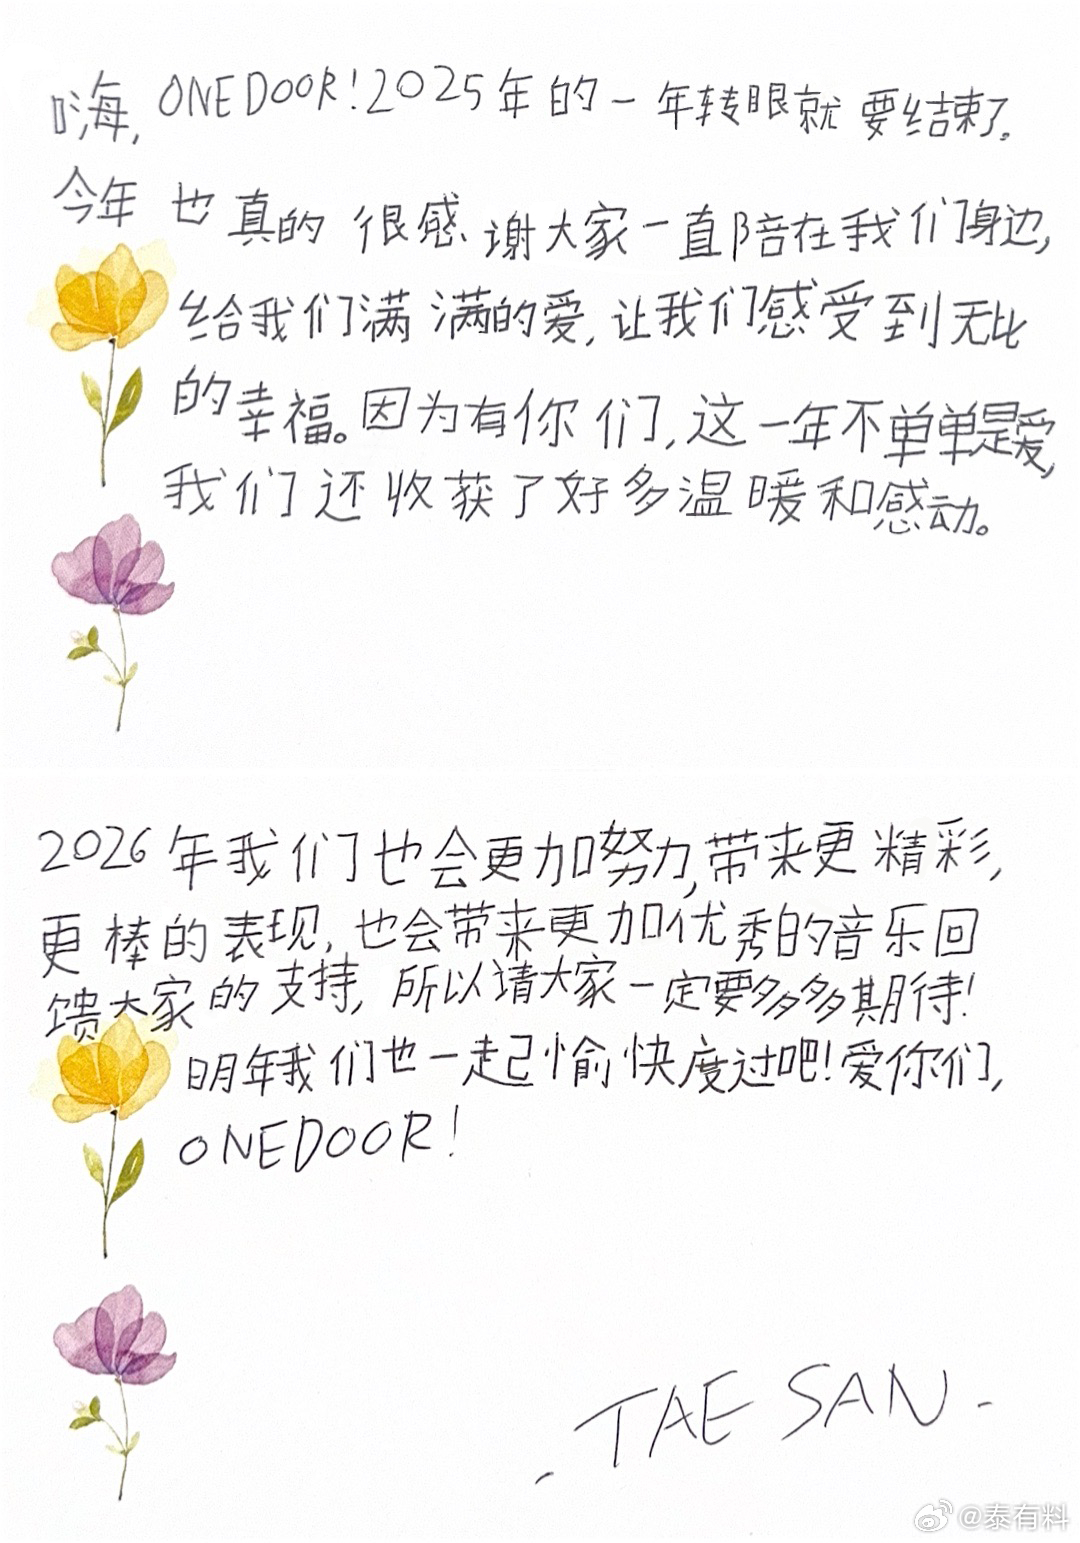 嗨, ONEDOOR! 2025年的一年转眼就要结束了。
今年也真的很感谢大家一直陪在我们身边,
给我们满满的爱, 让我们感受到无比
的幸福。因为有你们, 这一年不单单是爱,
我们还收获了好多温暖和感动。
2026年我们也会更加努力, 带来更精彩,
更棒的表现, 也会带来更加优秀的音乐回
馈大家的支持, 所以请大家一定要多多多期待!
明年我们也一起愉快度过吧! 爱你们,
ONEDOOR!
. TAE SAN -
@泰有料